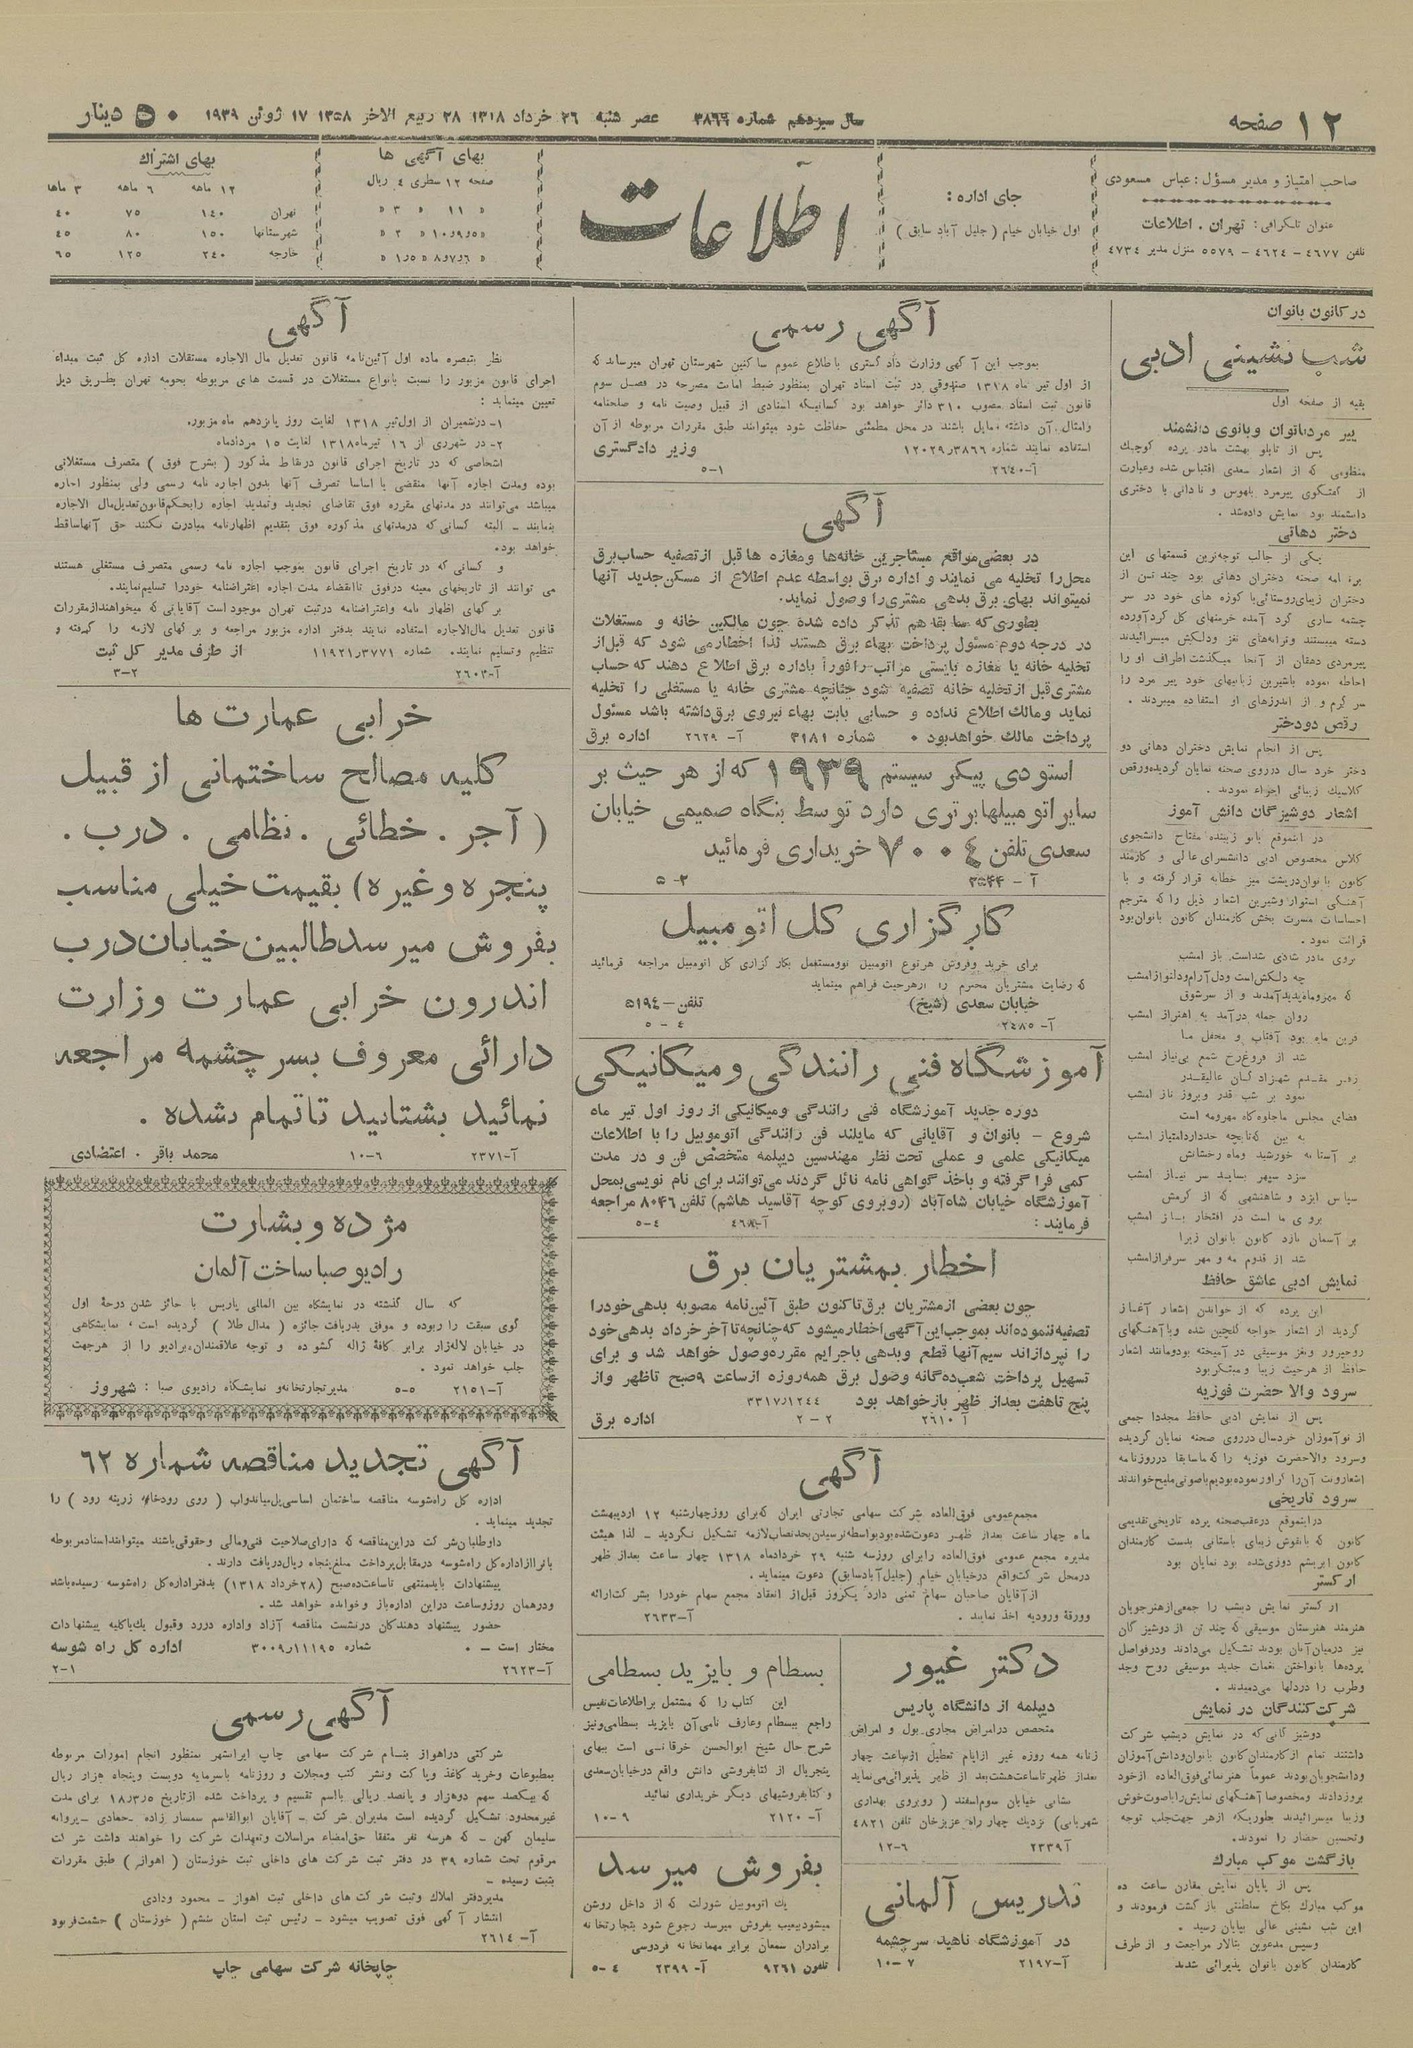 ۱۲ صفحه
سال سیزدهم شماره ۳۸۶۶ عصر شنبه ۲۶ خرداد ۱۳۱۸ ۲۸ ربیع الاخر ۱۳۵۸ ۱۷ ژوئن ۱۹۳۹
۵۰ دینار
صاحب امتیاز و مدیر مسؤل: عباس مسعودی
عنوان تلگرافی: تهران . اطلاعات
تلفن ۴۶۷۷ - ۴۶۲۴ - ۵۵۷۹ منزل مدیر ۴۷۳۴
جای اداره :
اول خیابان خیام ( جلیل آباد سابق )
اطلاعات
بهای آگهی ها
صفحه ۱۲ سطری ۴ ریال
« ۱۱ « ۳ «
« ۵ر۹ر۱۰ « ۲ «
« ۶ر۷ر۸ « ۱ر۵ «
بهای اشتراك
۱۲ ماهه ۶ ماهه ۳ ماهه
تهران ۱۴۰ ۷۵ ۴۰
شهرستانها ۱۵۰ ۸۰ ۴۵
خارجه ۲۴۰ ۱۲۵ ۶۵
در کانون بانوان
شب نشینی ادبی
بقیه از صفحه اول
پیر مرد نادان وبانوی دانشمند
پس از تابلو بهشت مادر پرده کوچك
منظومی که از اشعار سعدی اقتباس شده وعبارت
از گفتگوی پیرمرد بلهوس و نادانی با دختری
دانشمند بود نمایش داده شد .
دختر دهاتی
یکی از جالب توجه ترین قسمتهای این
برنامه صحنه دختران دهاتی بود چند تن از
دختران زیبای روستائی با کوزه های خود در سر
چشمه ساری گرد آمده خرمنهای گل گرد آورده
دسته میبستند وترانه های نغز ودلکش میسرائیدند
پیرمردی دهقان از آنجا میگذشت اطراف او را
احاطه نموده باشیرین زبانیهای خود پیر مرد را
سر گرم و از اندرزهای او استفاده میبردند .
رقص دو دختر
پس از انجام نمایش دختران دهاتی دو
دختر خرد سال در روی صحنه نمایان گردیده ورقص
کلاسیك زیبائی اجراء نمودند .
اشعار دوشیزگان دانش آموز
در اینموقع بانو زبینده مفتاح دانشجوی
کلاس مخصوص ادبی دانشسرای عالی و کارمند
کانون بانوان در پشت میز خطابه قرار گرفته و با
آهنگی استوار وشیرین اشعار ذیل را که مترجم
احساسات مسرت بخش کارمندان کانون بانوان بود
قرائت نمود .
بروی مادر شادی شد است باز امشب
چه دلکش است ودل آرام و دلنواز امشب
که مهر و ماه پدید آمدند و از سر شوق
روان جمله در آمد به اهتزاز امشب
قرین ماه بود آفتاب و محفل ما
شد از فروغ رخ شمع بی نیاز امشب
زهر مقدم شهزادگان عالیقدر
نمود بر شب قدر و بروز ناز امشب
فضای مجلس ما جلوه گاه مهر ومه است
به بین که تا بچه حد دارد امتیاز امشب
بر آستانه خورشید وماه رخشانش
سزد سپهر بساید سر نیاز امشب
سپاس ایزد و شاهنشهی که از کرمش
بروی ما است در افتخار باز امشب
بر آسمان نازد کانون بانوان زیرا
شد از قدوم مه و مهر سرفراز امشب
نمایش ادبی عاشق حافظ
این پرده که از خواندن اشعار آغاز
گردید از اشعار خواجه گلچین شده وبا آهنگهای
روحپرور ونغز موسیقی در آمیخته بود ومانند اشعار
حافظ از هر حیث زیبا و مبتکر بود
سرود والا حضرت فوزیه
پس از نمایش ادبی حافظ مجددا جمعی
از نو آموزان خردسال در روی صحنه نمایان گردیده
وسرود والاحضرت فوزیه را که ما سابقا در روزنامه
اشعار ونت آن را گراور نموده بودیم باصوتی ملیح خواندند
سرود تاریخی
در اینموقع در عقب صحنه پرده تاریخی تقدیمی
کانون که با نقوش زیبای باستانی بدست کارمندان
کانون ابریشم دوزی شده بود نمایان بود
ارکستر
ارکستر نمایش دیشب را جمعی از هنرجویان
هنرمند هنرستان موسیقی که چند تن از دوشیزگان
نیز در میان آنان بودند تشکیل می دادند ودر فواصل
پرده ها با نواختن نغمات جدید موسیقی روح وجد
وطرب را در دلها می دمیدند .
شرکت کنندگان در نمایش
دوشیزگانی که در نمایش دیشب شرکت
داشتند تمام از کارمندان کانون بانوان ودانش آموزان
ودانشجویان بودند عموماً هنر نمائی فوق العاده از خود
بروز دادند ومخصوصا آهنگهای نمایش را با صوت خوش
وزیبا میسرائیدند بطوریکه از هر جهت جلب توجه
وتحسین حضار را نمودند.
بازگشت موکب مبارك
پس از پایان نمایش مقارن ساعت ده
موکب مبارك بکاخ سلطنتی باز گشت فرمودند و
این شب نشینی عالی بپایان رسید .
وسپس مدعوین بتالار مراجعت و از طرف
کارمندان کانون بانوان پذیرائی شدند
آگهی رسمی
بموجب این آگهی وزارت دادگستری باطلاع عموم ساکنین شهرستان تهران میرساند که
از اول تیر ماه ۱۳۱۸ صندوقی در ثبت اسناد تهران بمنظور ضبط امانت مصرحه در فصل سوم
قانون ثبت اسناد مصوب ۳۱۰ دائر خواهد بود کسانیکه اسنادی از قبیل وصیت نامه و صلحنامه
وامثال آن داشته ومایل باشند در محل مطمئنی حفاظت شود میتوانند طبق مقررات مربوطه از آن
استفاده نمایند شماره ۳۸۶۶ر۱۲۰۲۹ وزیر دادگستری
آ-۲۶۴۰ ۱-۵
آگهی
در بعضی مواقع مستأجرین خانه ها ومغازه ها قبل از تصفیه حساب برق
محل را تخلیه می نمایند و اداره برق بواسطه عدم اطلاع از مسکن جدید آنها
نمیتواند بهای برق بدهی مشتری را وصول نماید.
بطوری که سابقا هم تذکر داده شده چون مالکین خانه و مستغلات
در درجه دوم مسئول پرداخت بهاء برق هستند لذا اخطار می شود که قبل از
تخلیه خانه یا مغازه بایستی مراتب را فورأ باداره برق اطلاع دهند که حساب
مشتری قبل از تخلیه خانه تصفیه شود چنانچه مشتری خانه یا مستغلی را تخلیه
نماید ومالك اطلاع نداده و حسابی بابت بهاء نیروی برق داشته باشد مسئول
پرداخت مالك خواهد بود . شماره ۳۱۸۱ آ- ۲۶۲۹ اداره برق
استودی پیکر سیستم ۱۹۳۹ که از هر حیث بر
سایر اتومبیلها برتری دارد توسط بنگاه صمیمی خیابان
سعدی تلفن ۷۰۰۴ خریداری فرمائید
آ - ۲۵۴۴ ۲-۵
کارگزاری کل اتومبیل
برای خرید وفروش هر نوع اتومبیل نو ومستعمل بکارگزاری کل اتومبیل مراجعه فرمائید
که رضایت مشتریان محترم را از هر حیث فراهم مینماید
خیابان سعدی (شیخ) تلفن - ۵۱۹۴
آ- ۲۴۸۵ ۴ - ۵
آموزشگاه فنی رانندگی ومیکانیکی
دوره جدید آموزشگاه فنی رانندگی ومیکانیکی از روز اول تیر ماه
شروع - بانوان و آقایانی که مایلند فن رانندگی اتوموبیل را با اطلاعات
میکانیکی علمی و عملی تحت نظر مهندسین دیپلمه متخصص فن و در مدت
کمی فرا گرفته و باخذ گواهی نامه نائل گردند می توانند برای نام نویسی بمحل
آموزشگاه خیابان شاه آباد (روبروی کوچه آقاسید هاشم) تلفن ۸۰۴۶ مراجعه
فرمایند :
۴-۵
اخطار بمشتریان برق
چون بعضی از مشتریان برق تاکنون طبق آئین نامه مصوبه بدهی خود را
تصفیه ننموده اند بموجب این آگهی اخطار میشود که چنانچه تا آخر خرداد بدهی خود
را نپردازاند سیم آنها قطع وبدهی با جرایم مقرره وصول خواهد شد و برای
تسهیل پرداخت شعب ده گانه وصول برق همه روزه از ساعت ۹ صبح تاظهر واز
پنج تا هفت بعد از ظهر باز خواهد بود ۱۲۴۴ر۳۳۱۷
آ ۲۶۱۰ ۲ - ۲ اداره برق
آگهی
مجمع عمومی فوق العاده شرکت سهامی تجارتی ایران که برای روز چهارشنبه ۱۳ اردیبهشت
ماه چهار ساعت بعد از ظهر دعوت شده بود بواسطه نرسیدن بحد نصاب لازمه تشکیل نگردید - لذا هیئت
مدیره مجمع عمومی فوق العاده را برای روز سه شنبه ۲۹ خرداد ماه ۱۳۱۸ چهار ساعت بعد از ظهر
در محل شرکت واقع در خیابان خیام (جلیل آباد سابق) دعوت مینماید .
از آقایان صاحبان سهام تمنی دارد یکروز قبل از انعقاد مجمع سهام خود را بشرکت ارائه
وورقه ورودیه اخذ نمایند . آ-۲۶۳۳
دکتر غیور
دیپلمه از دانشگاه پاریس
متخصص در امراض مجاری بول و امراض
زنانه همه روزه غیر از ایام تعطیل از ساعت چهار
بعد از ظهر تا ساعت هشت بعد از ظهر پذیرائی می نماید
نشانی خیابان سوم اسفند ( روبروی بهداری
شهربانی) نزدیك چهار راه عزیز خان تلفن ۴۸۲۱
آ ۲۳۳۹ ۶-۱۲
تدریس آلمانی
در آموزشگاه ناهید سرچشمه
آ-۲۱۹۷ ۷ -۱۰
بسطام و بایزید بسطامی
این کتاب را که مشتمل بر اطلاعات نفیس
راجع ببسطام وعارف نامی آن بایزید بسطامی ونیز
شرح حال شیخ ابوالحسن خرقانی است ببهای
پنجریال از کتابفروشی دانش واقع در خیابان سعدی
و کتابفروشیهای دیگر خریداری نمائید
آ- ۲۱۲۰ ۹ -۱۰
بفروش میرسد
یك اتوموبیل شورلت که از داخل روشن
میشود بیعیب بفروش میرسد رجوع شود بتجارتخانه
برادران سمعان برابر مهمانخانه فردوسی
تلفون ۹۲۶۱ آ- ۲۳۹۹ ۴ -۵
آگهی
نظر بتبصره ماده اول آئین نامه قانون تعدیل مال الاجاره مستغلات اداره کل ثبت مبداء
اجرای قانون مزبور را نسبت بانواع مستغلات در قسمت های مربوطه بحومه تهران بطریق ذیل
تعیین مینماید :
۱- در شمیران از اول تیر ۱۳۱۸ لغایت روز پانزدهم ماه مزبور.
۲- در شهرری از ۱۶ تیر ماه ۱۳۱۸ لغایت ۱۵ مرداد ماه
اشخاصی که در تاریخ اجرای قانون در نقاط مذکور ( بشرح فوق ) متصرف مستغلاتی
بوده ومدت اجاره آنها منقضی یا اساسا تصرف آنها بدون اجاره نامه رسمی ولی بمنظور اجاره
میباشد می توانند در مدتهای مقرره فوق تقاضای تجدید وتمدید اجاره را بحکم قانون تعدیل مال الاجاره
بنمایند - البته کسانی که در مدتهای مذکوره فوق بتقدیم اظهارنامه مبادرت نکنند حق آنها ساقط
خواهد بود.
و کسانی که در تاریخ اجرای قانون بموجب اجاره نامه رسمی متصرف مستغلی هستند
می توانند از تاریخهای معینه در فوق تا انقضاء مدت اجاره اعتراضنامه خود را تسلیم نمایند.
برگهای اظهار نامه واعتراضنامه در ثبت تهران موجود است آقایانی که میخواهند از مقررات
قانون تعدیل مال الاجاره استفاده نمایند بدفتر اداره مزبور مراجعه و برگهای لازمه را گرفته و
تنظیم وتسلیم نمایند. شماره ۳۷۷۱ر۱۱۹۲۱ از طرف مدیر کل ثبت
آ-۲۶۰۳ ۲-۳
خرابی عمارت ها
کلیه مصالح ساختمانی از قبیل
( آجر . خطائی . نظامی . درب .
پنجره وغیره) بقیمت خیلی مناسب
بفروش میرسد طالبین خیابان درب
اندرون خرابی عمارت وزارت
دارائی معروف بسر چشمه مراجعه
نمائید بشتابید تا تمام نشده .
آ-۲۳۷۱ ۶-۱۰ محمد باقر . اعتضادی
مژده وبشارت
رادیو صبا ساخت آلمان
که سال گذشته در نمایشگاه بین المللی پاریس با حائز شدن درجه اول
گوی سبقت را ربوده و موفق بدریافت جائزه ( مدال طلا ) گردیده است ، نمایشگاهی
در خیابان لاله زار برابر کافه ژاله گشوده و توجه علاقمندان برادیو را از هر جهت
جلب خواهد نمود .
آ-۲۱۵۱ ۵-۵ مدیر تجارتخانه و نمایشگاه رادیوی صبا : شهروز
آگهی تجدید مناقصه شماره ۶۲
اداره کل راه شوسه مناقصه ساختمان اساسی پل میاندواب ( روی رودخانه زرینه رود ) را
تجدید مینماید .
داوطلبان شرکت در این مناقصه که دارای صلاحیت فنی ومالی وحقوقی باشند میتوانند اسناد مربوطه
بآنرا از اداره کل راه شوسه در مقابل پرداخت مبلغ پنجاه ریال دریافت دارند .
پیشنهادات باید منتهی تا ساعت ده صبح (۲۸ خرداد ۱۳۱۸) بدفتر اداره کل راه شوسه رسیده باشد
ودر همان روز و ساعت در این اداره باز و خوانده خواهد شد .
حضور پیشنهاد دهندگان در نشست مناقصه آزاد و اداره در رد وقبول یك یا کلیه پیشنهادات
مختار است - . شماره ۱۱۱۹۵ر۳۰۰۹ اداره کل راه شوسه
آ-۲۶۲۳ ۱-۲
آگهی رسمی
شرکتی در اهواز بنام شرکت سهامی چاپ ایرانشهر بمنظور انجام امورات مربوطه
بمطبوعات وخرید کاغذ وپاکت ونشر کتب ومجلات و روزنامه باسرمایه دویست وپنجاه هزار ریال
که بیکصد سهم دوهزار و پانصد ریالی بااسم تقسیم و پرداخت شده از تاریخ ۱۸ر۳ر۵ برای مدت
غیر محدود تشکیل گردیده است مدیران شرکت - آقایان ابوالقاسم سمسار زاده - حمادی - پروانه
سلیمان کهن - که هر سه نفر متفقا حق امضاء مراسلات وتعهدات شرکت را خواهند داشت شرکت
مرقوم تحت شماره ۳۹ در دفتر ثبت شرکت های داخلی ثبت خوزستان ( اهواز ) طبق مقررات
بثبت رسیده -
مدیر دفتر املاك وثبت شرکت های داخلی ثبت اهواز - محمود ودادی
انتشار آگهی فوق تصویب میشود - رئیس ثبت استان ششم ( خوزستان )
آ- ۲۶۱۴
چاپخانه شرکت سهامی چاپ